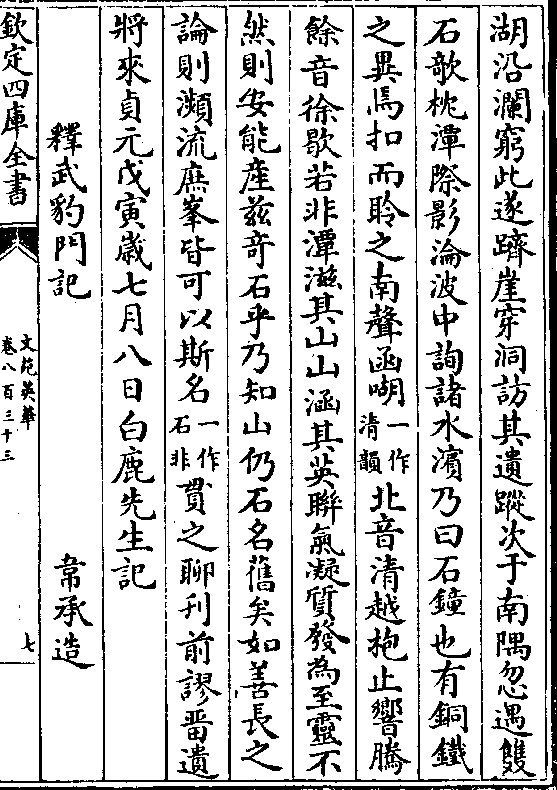 湖沿瀾窮此遂躋崖穿洞訪其遺蹤次于南隅忽遇雙
石欹枕潭際影淪波中詢諸水濱乃曰石鐘也有銅鐵
之異焉扣而聆之南聲函㗅一作清韻北音清越枹止響騰
餘音徐歇若非潭滋其山山涵其英聯氣凝質發為至靈不
然則安能產兹奇石乎乃知山仍石名舊矣如善長之
論則瀕流庶峯皆可以斯名一作石非貫之聊刋前謬㽞遺
將來貞元戊寅歳七月八日白鹿先生記
釋武豹門記 韋承造
欽定四庫全書
文苑英華
卷八百三十三
七